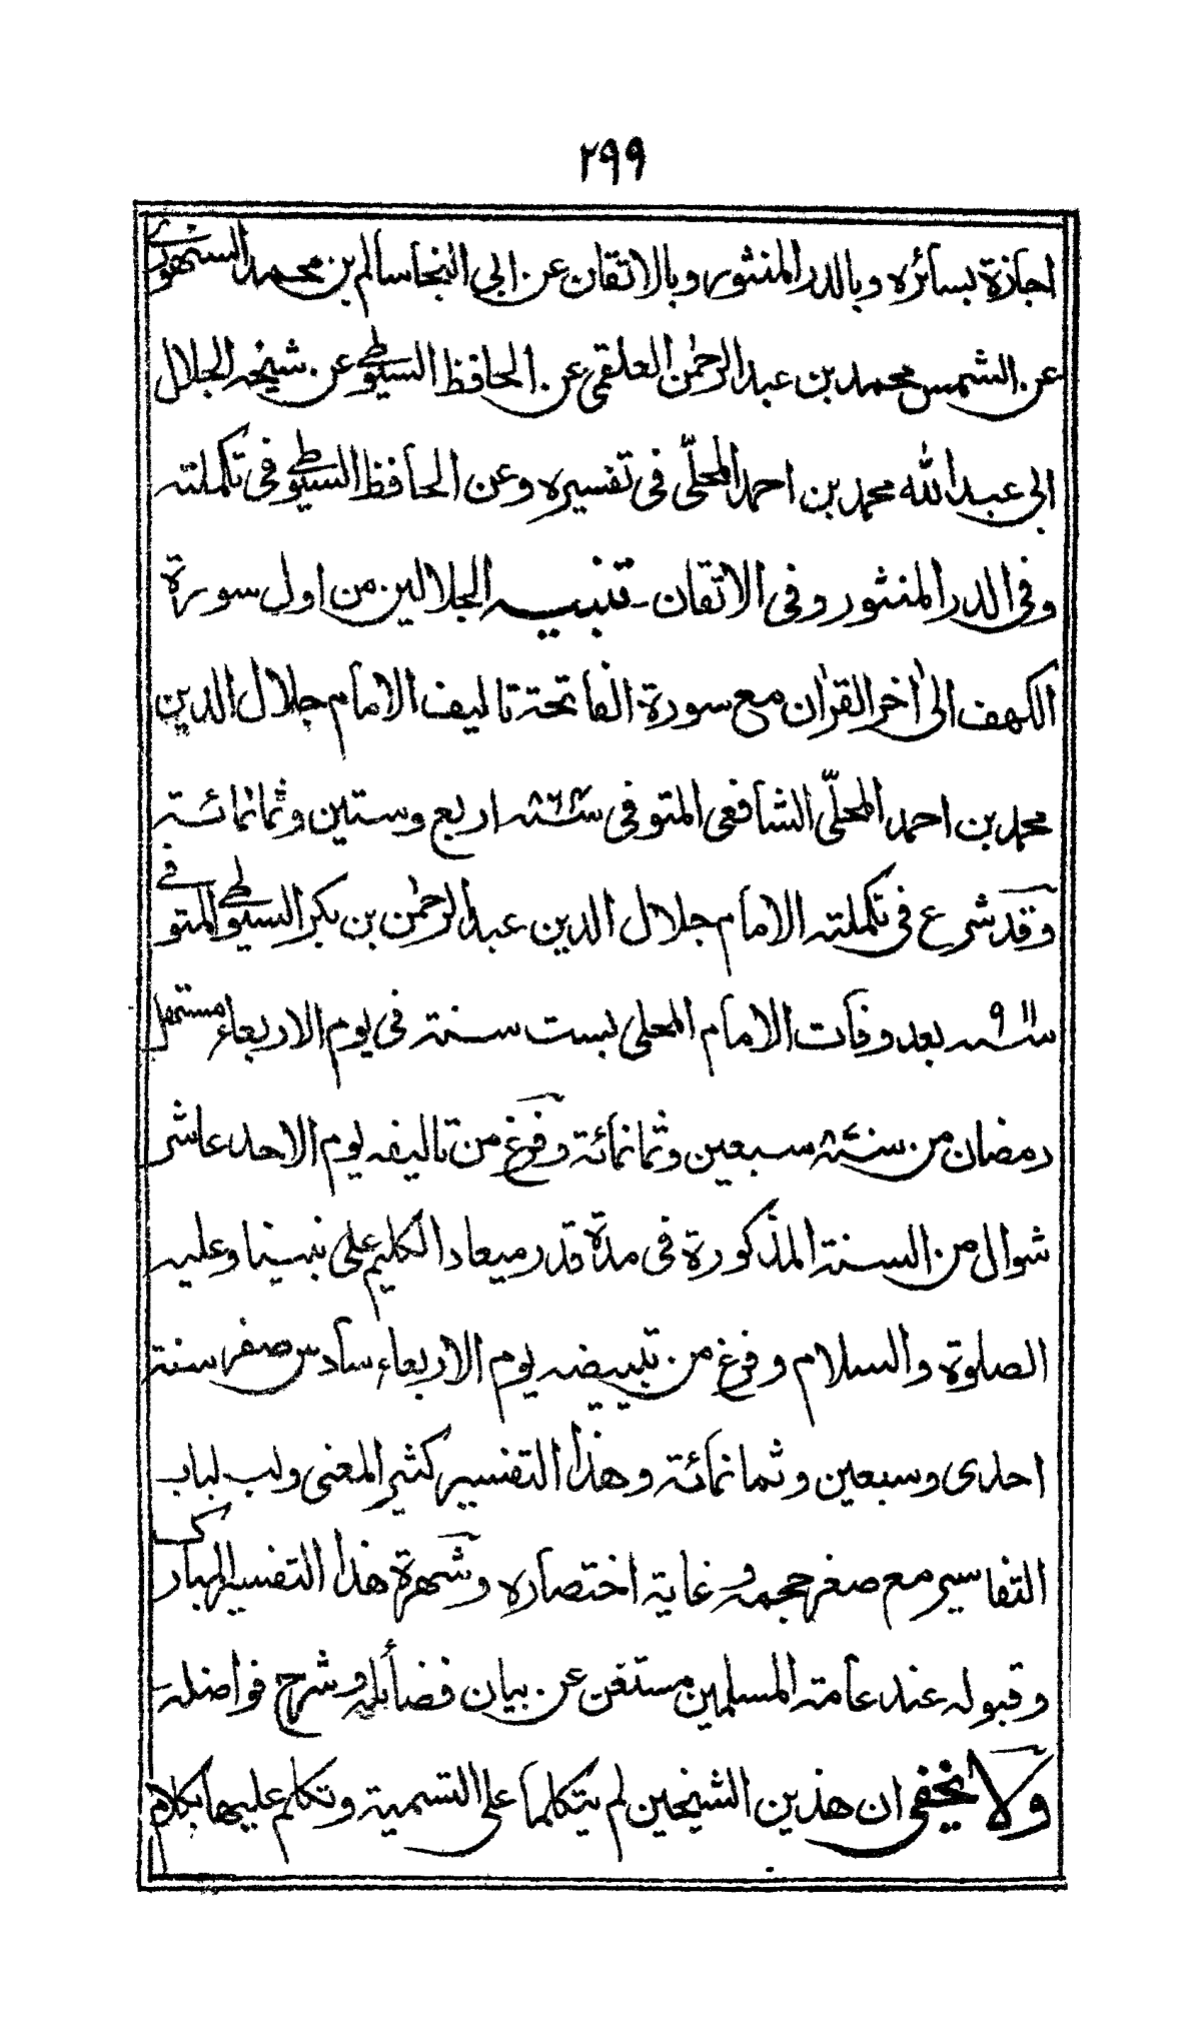 ٢٩٩
اجازة بسائره وبالدر المنثور وبالاتقان عن ابي النجا سالم بن محمد السنهوري
عن الشمس محمد بن عبد الرحمٰن العلقمي عن الحافظ السيوطي عن شيخه الجلال
ابي عبد الله محمد بن احمد المحلّي في تفسيره وعن الحافظ السيوطي في تكملته
وفي الدر المنثور وفي الاتقان - تنبيه الجلالين من اول سورة
الكهف الىٰ اٰخر القراٰن مع سورة الفاتحة تاليف الامام جلال الدين
محمد بن احمد المحلّي الشافعي المتوفى سنة ٨٦٤ه اربع وستين وثمانمائة
وقد شرع في تكملته الامام جلال الدين عبد الرحمٰن بن بكر السيوطي المتوفى
سنة ٩١١ه بعد وفات الامام المحلي بست سنة في يوم الاربعاء مستهل
رمضان من سنة ٨٧٠ه سبعين وثمانمائة وفرغ من تاليفه يوم الاحد عاشر
شوال من السنة المذكورة في مدة قدر ميعاد الكليم على نبينا وعليه
الصلوة والسلام وفرغ من تبييضه يوم الاربعاء سادس صفر سنة
احدى وسبعين وثمانمائة وهذا التفسير كثير المعنى ولب لباب
التفاسير مع صغر حجمه وغاية اختصاره وشهرة هذا التفسير المبارك
وقبوله عند عامة المسلمين مستغن عن بيان فضائله وشرح فواضله
ولا يخفى ان هذين الشيخين لم يتكلما على التسمية وتكلم عليها بكلام